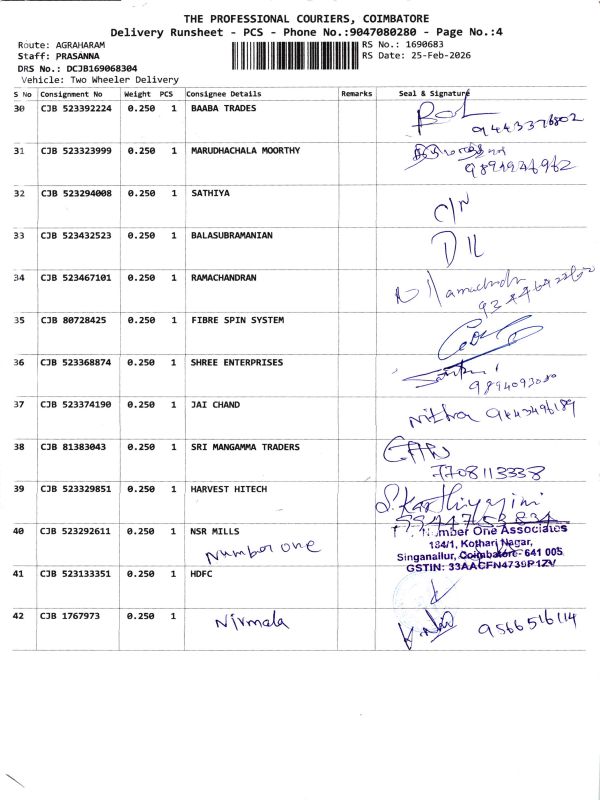 THE PROFESSIONAL COURIERS, COIMBATORE
Delivery Runsheet - PCS - Phone No.:9047080280 - Page No.:4
Route: AGRAHARAM RS No.: 1690683
Staff: PRASANNA RS Date: 25-Feb-2026
DRS No.: DCJB169068304
Vehicle: Two Wheeler Delivery
S No Consignment No Weight PCS Consignee Details Remarks Seal & Signature
30 CJB 523392224 0.250 1 BAABA TRADES
9443376802
31 CJB 523323999 0.250 1 MARUDHACHALA MOORTHY
9894946962
32 CJB 523294008 0.250 1 SATHIYA
C/N
33 CJB 523432523 0.250 1 BALASUBRAMANIAN
D/L
34 CJB 523467101 0.250 1 RAMACHANDRAN
Ramachandr
35 CJB 80728425 0.250 1 FIBRE SPIN SYSTEM
36 CJB 523368874 0.250 1 SHREE ENTERPRISES
9894093080
37 CJB 523374190 0.250 1 JAI CHAND
Nithra 9443496189
38 CJB 81383043 0.250 1 SRI MANGAMMA TRADERS
7708113338
39 CJB 523329851 0.250 1 HARVEST HITECH
S. Karthiyayini
40 CJB 523292611 0.250 1 NSR MILLS
Number one
Number One Associates
184/1, Kothari Nagar,
Singanallur, Coimbatore- 641 005
GSTIN: 33AACFN4739P1ZV
41 CJB 523133351 0.250 1 HDFC
42 CJB 1767973 0.250 1
Nirmala
9566516114